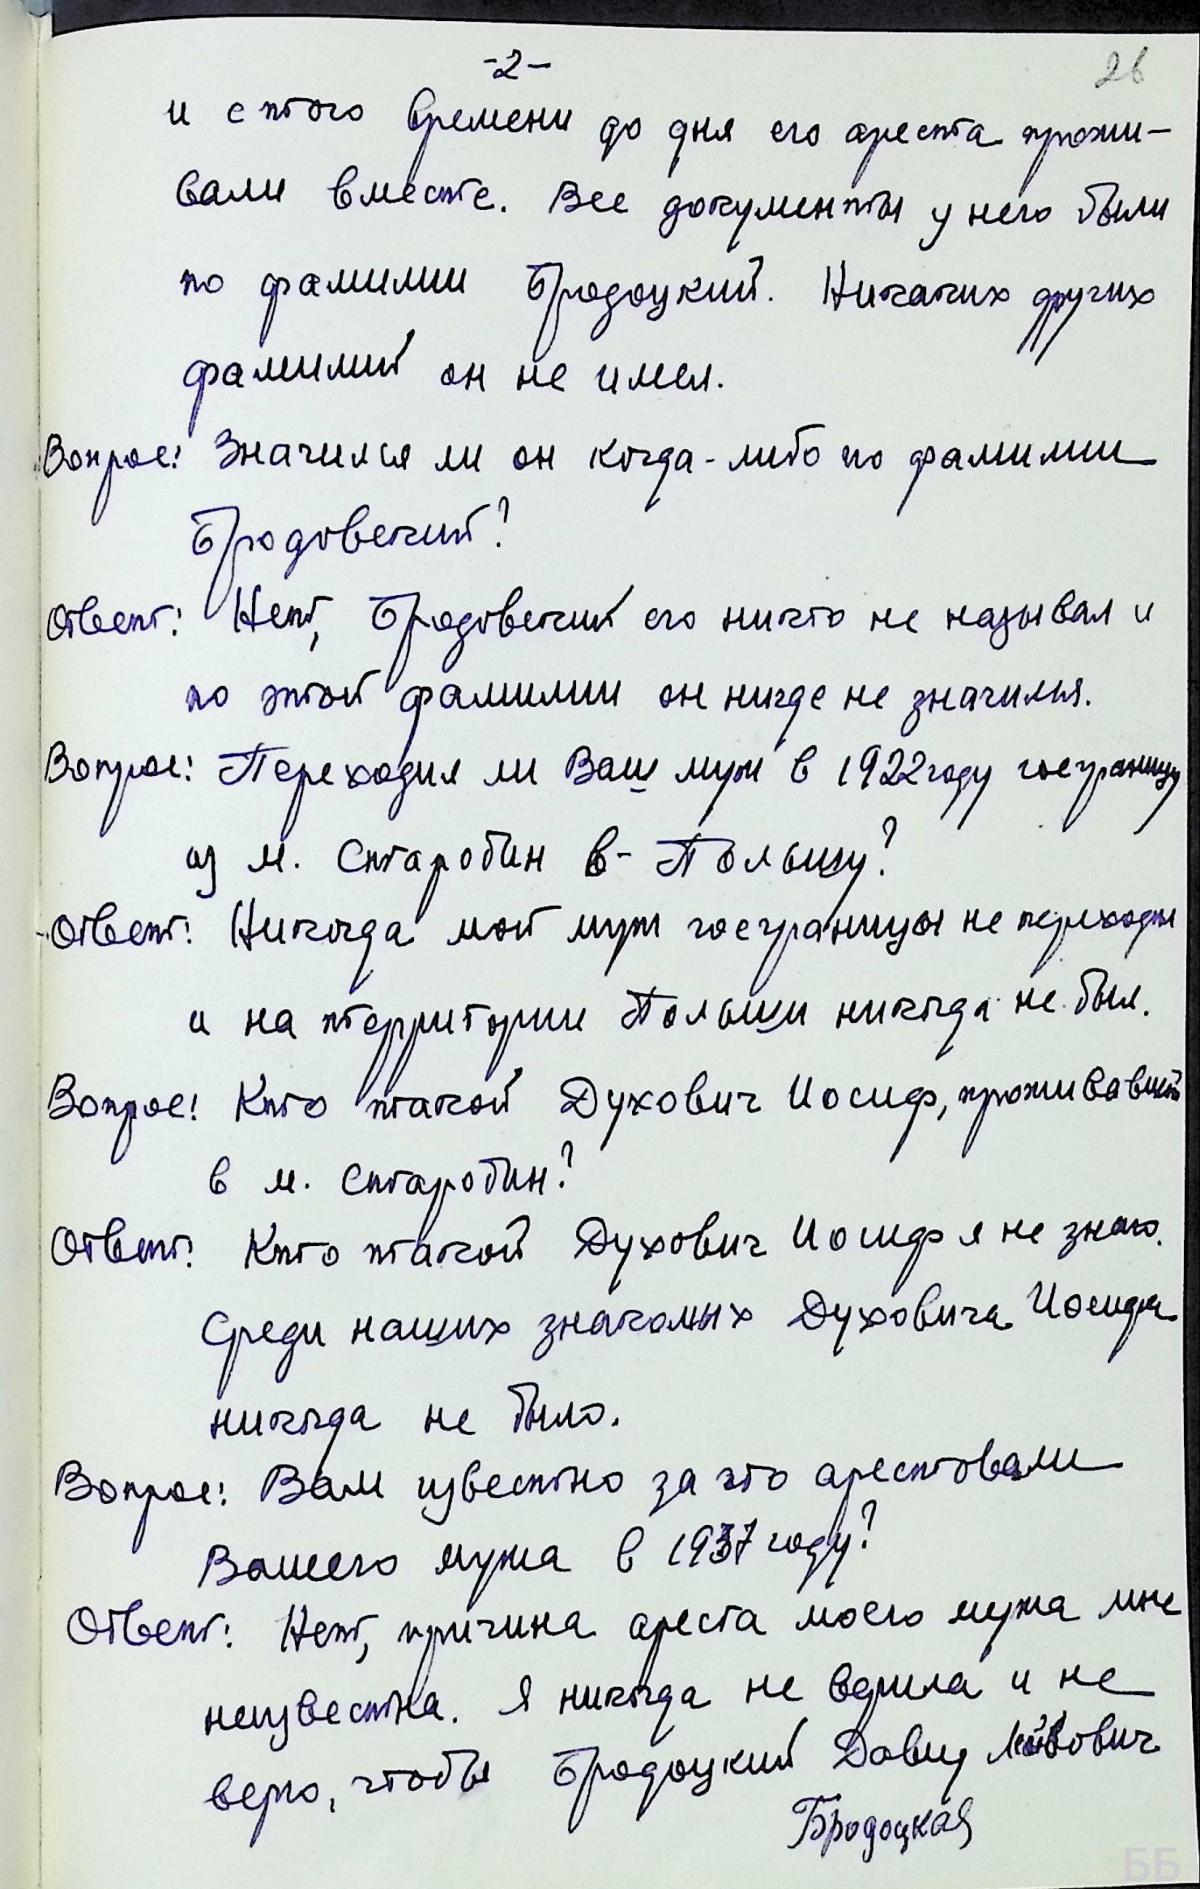 -2-
26
и с этого времени до дня его ареста прожи-
вали вместе. Все документы у него были
по фамилии Бродоцкий. Никаких других
фамилий он не имел.
Вопрос: Значился ли он когда-либо по фамилии
Бродовский?
Ответ: Нет, Бродовский его никто не называл и
по этой фамилии он нигде не значился.
Вопрос: Переходил ли Ваш муж в 1922 году госграницу
из м. Старобин в Польшу?
Ответ: Никогда мой муж госграницы не переходил
и на территории Польши никогда не был.
Вопрос: Кто такой Духович Иосиф, проживавший
в м. Старобин?
Ответ: Кто такой Духович Иосиф я не знаю.
Среди наших знакомых Духовича Иосифа
никогда не было.
Вопрос: Вам известно за что арестовали
Вашего мужа в 1937 году?
Ответ: Нет, причина ареста моего мужа мне
неизвестна. Я никогда не верила и не
верю, чтобы Бродоцкий Давид Лейбович
Бродоцкая
ББ